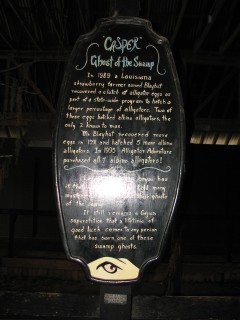 "CASPER"
Ghost of the Swamp
In 1989 a Louisiana
strawberry farmer named Blayhut
recovered a clutch of alligator eggs as
part of a state-wide program to hatch a
larger percentage of alligators. Two of
these eggs hatched albino alligators, the
only 2 known to man.
Mr. Blayhut recovered more
eggs in and hatched 5 more albino
alligators. In 1995 Alligator Adventure
purchased all 7 albino alligators!
has
it many
ghosts
of the
It still remains a Cajun
superstition that a lifetime of
good luck comes to any person
that has seen one of these
swamp ghosts.